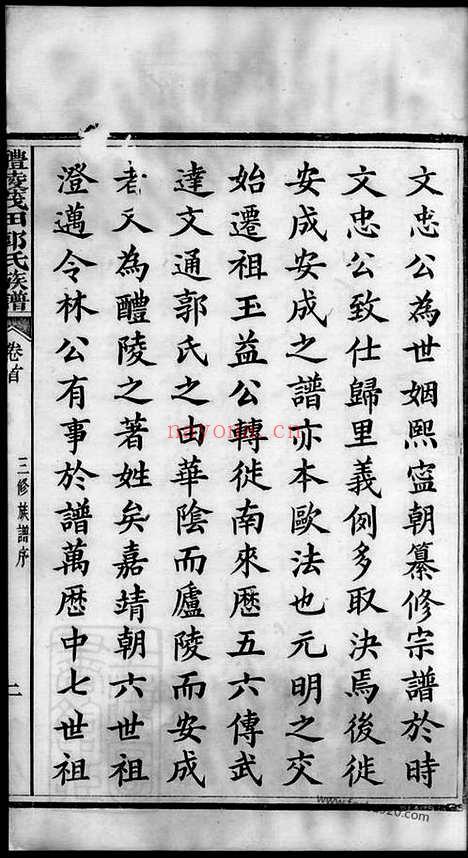 文忠公為世姻熙寧朝纂修宗譜於時
文忠公致仕歸里義例多取決焉後徙
安成安成之譜亦本歐法也元明之交
始遷祖玉益公轉徙南來歷五六傳武
達文通郭氏之由華陰而廬陵而安成
者又為醴陵之著姓矣嘉靖朝六世祖
澄邁令林公有事於譜萬歷中七世祖
醴陵茂田郭氏族譜
卷首
三修族譜序
二
nayona.cn